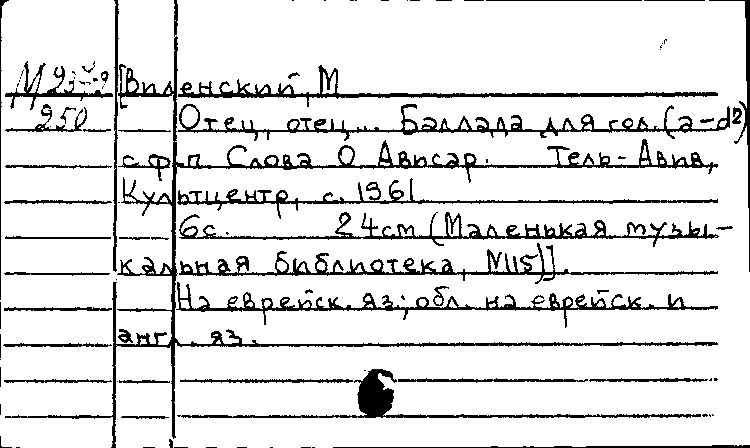 [Виленский, М
250 Отец, отец... Баллада для гол. (a-d²)
с ф-п. Слова О Ависар. Тель-Авив,
Культцентр, с. 1961.
6с. 24см (Маленькая музы-
кальная библиотека, №115)].
На еврейск. яз; обл. на еврейск. и
англ. яз.